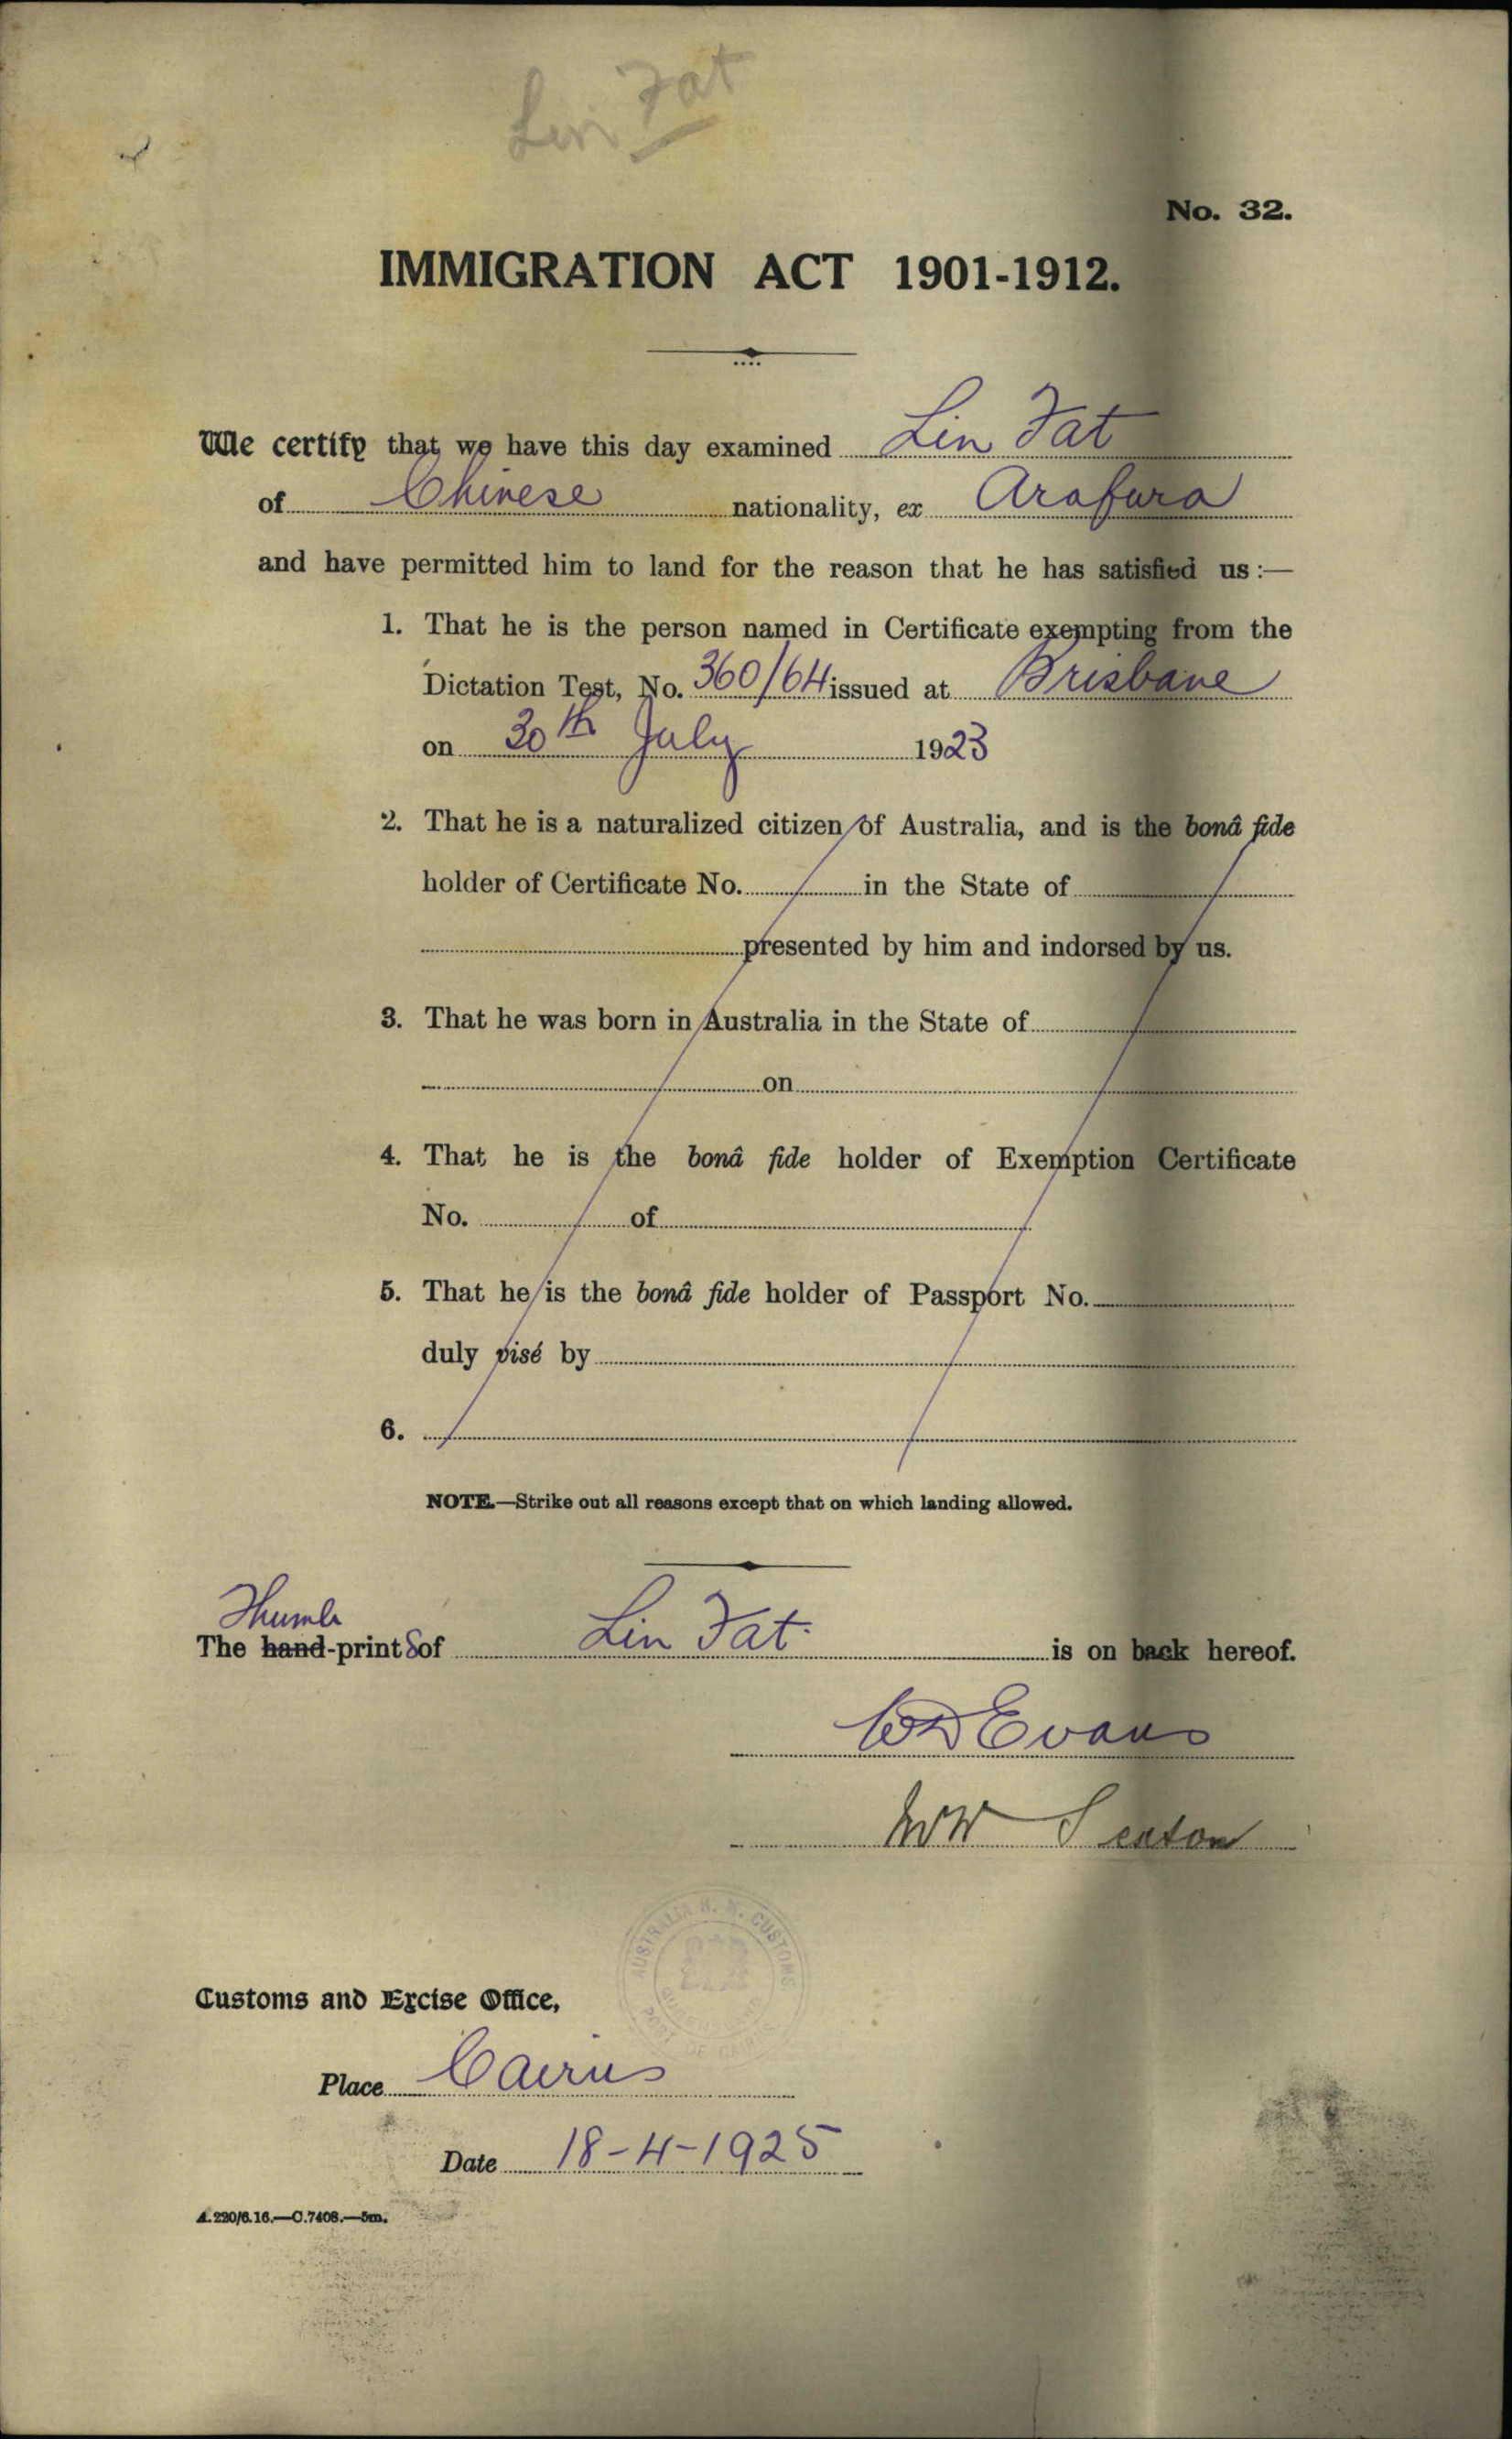 Lin Fat
No. 32.
IMMIGRATION ACT 1901-1912.
We certify that we have this day examined Lin Fat
of Chinese nationality, ex Arafura
and have permitted him to land for the reason that he has satisfied us :—
1. That he is the person named in Certificate exempting from the
Dictation Test, No. 360/64 issued at Brisbane
on 30th July 1923
2. That he is a naturalized citizen of Australia, and is the bonâ fide
holder of Certificate No. in the State of
presented by him and indorsed by us.
3. That he was born in Australia in the State of
on
4. That he is the bonâ fide holder of Exemption Certificate
No. of
5. That he is the bonâ fide holder of Passport No.
duly visé by
6.
NOTE.—Strike out all reasons except that on which landing allowed.
Thumb
The hand-prints of Lin Fat is on back hereof.
WD Evans
WW Seaton
AUSTRALIA H. M. CUSTOMS
Customs and Excise Office,
Place Cairns
Date 18-4-1925
A.220/6.16.—C.7408.—5m.